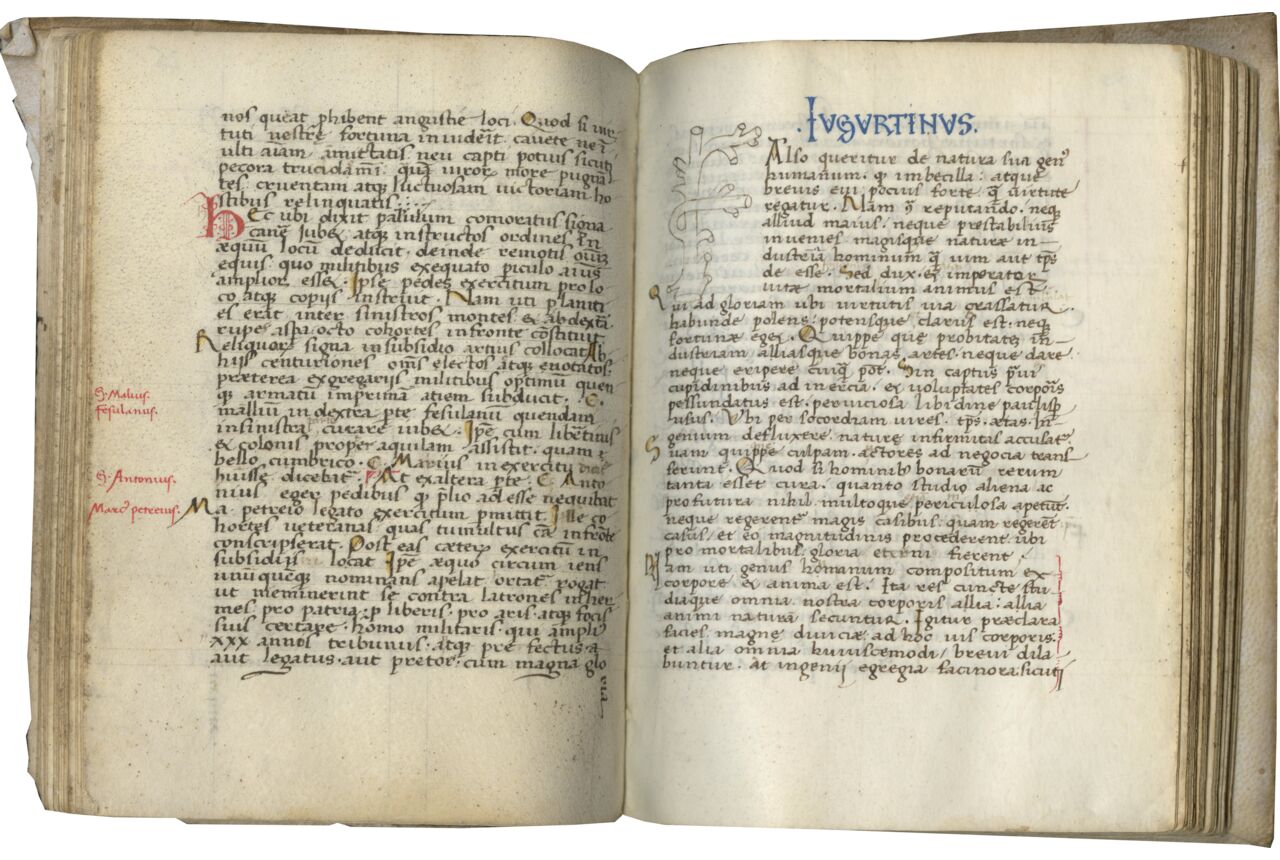 nos queat ꝓhibent angustie loci. Quod si uir-
tuti uestre fortuna inuiderit cauete ne i-
ulti aĩam amittatis. neu capti potius sicuti
pecora trucidamĩ: quã uiroꝝ more pugnã
tes. cruentam atqꝫ luctuosam uictoriam ho-
stibus relinquatis:....
HEc ubi dixit paululum comoratus signa
canẽ Iubet atqꝫ instructos ordines in
æquũ locũ deducit. deinde remotis
equis. quo militibus exequato piculo aĩus
amplior esset. Ipse pedes exercitum pro lo
co. atqꝫ copijs instruit. Nam uti planiti
es erat inter sinistros montes. et ab dextã
rupe aspa. octo cohortes in fronte cõstituit
Reliquoꝝ signa in subsidio artius collocat. Ab
hijs centuriones om̃s electos atqꝫ euocatos.
præterea ex gregarijs militibus optimũ quen
qꝫ armatũ in primam atiem subducit. C.
malliũ in dextra pte fesulanũ quendam
in sinistra curare iubet. Ipẽ cum libertinis
et colonis proper aquilam assistit. quam i
bello cimbrico. C. Marius in exercitu
huisse dicebat. At ex altera pte. C. Anto
nius eger pedibus qꝫ plio adesse nequibat
Ma. petreio legato exercitum pmittit. Ille co
hortes ueteranas quas tumultus cã in frõte
conscripserat. Post eas ceteꝝ exercitũ in
subsidijs locat Ipẽ æquo circum iens
unũ quẽqꝫ nominans apelat ortat rogat
ut meminerint se contra latrones in her
mes. pro patria. p liberis. pro aris. atqꝫ focis
suis certare. homo militaris. qui ampliꝰ
xxx annos tribunus. atqꝫ pre fectus. a
aut legatus. aut pretor. cum magna glo
S. Malius.
fesulanus.
S. Antonius.
Marcꝰ petreius.
.IUGURTINUS.
FAlso queritur de natura sua genꝰ
humanum. qꝫ imbecilla: atque
breuis eui pocius forte qꝫ uirtute
regatur. Nam reputando. neqꝫ
alliud maius. neque præstabilius
inuenies magisque naturæ in-
dustriã hominum qꝫ uim aut tp̃s
de esse. Sed dux. et imperator
uitæ mortalium animus est.
Qui ad gloriam ubi uirtutis uia grassatur.
habunde polens. potensque clarus est. neqꝫ
fortunæ eget. Quippe que probitatẽ in-
dustriam alliasque bonas artes. neque dare
neque eripere cuiqꝫ põt. Sin captus prauis
cupidinibus ad inercia. et uoluptates corpõis
pessundatus est. perniciosa libidine paulisp
usus. Ubi per socordiam uires. tp̃s. ætas. In-
genium defluxere. nature infirmitas accusatr.
Suam quippe culpam. actores ad negocia trans
ferunt. Quod si hominibꝰ bonarũ rerum
tanta esset cura. quanto studio aliena ac
profutura nihil. multoque periculosa apetũt.
neque regerentr magis casibus. quam regerẽt
casus. et eo magnitudinis procederent. ubi
pro mortalibus gloria eterni fierent
NAm uti genus homanum compositum ex
corpore et anima est. Ita res cuncte stu
diaque omnia nostra corporis allia. allia
animi naturã secuntur. Igitur præclara
facies. magnę diuiciæ. ad hoc uis corporis.
et alia omnia huiuscemodi / breui dila
buntur. At ingenij egregia facinora. sicuti